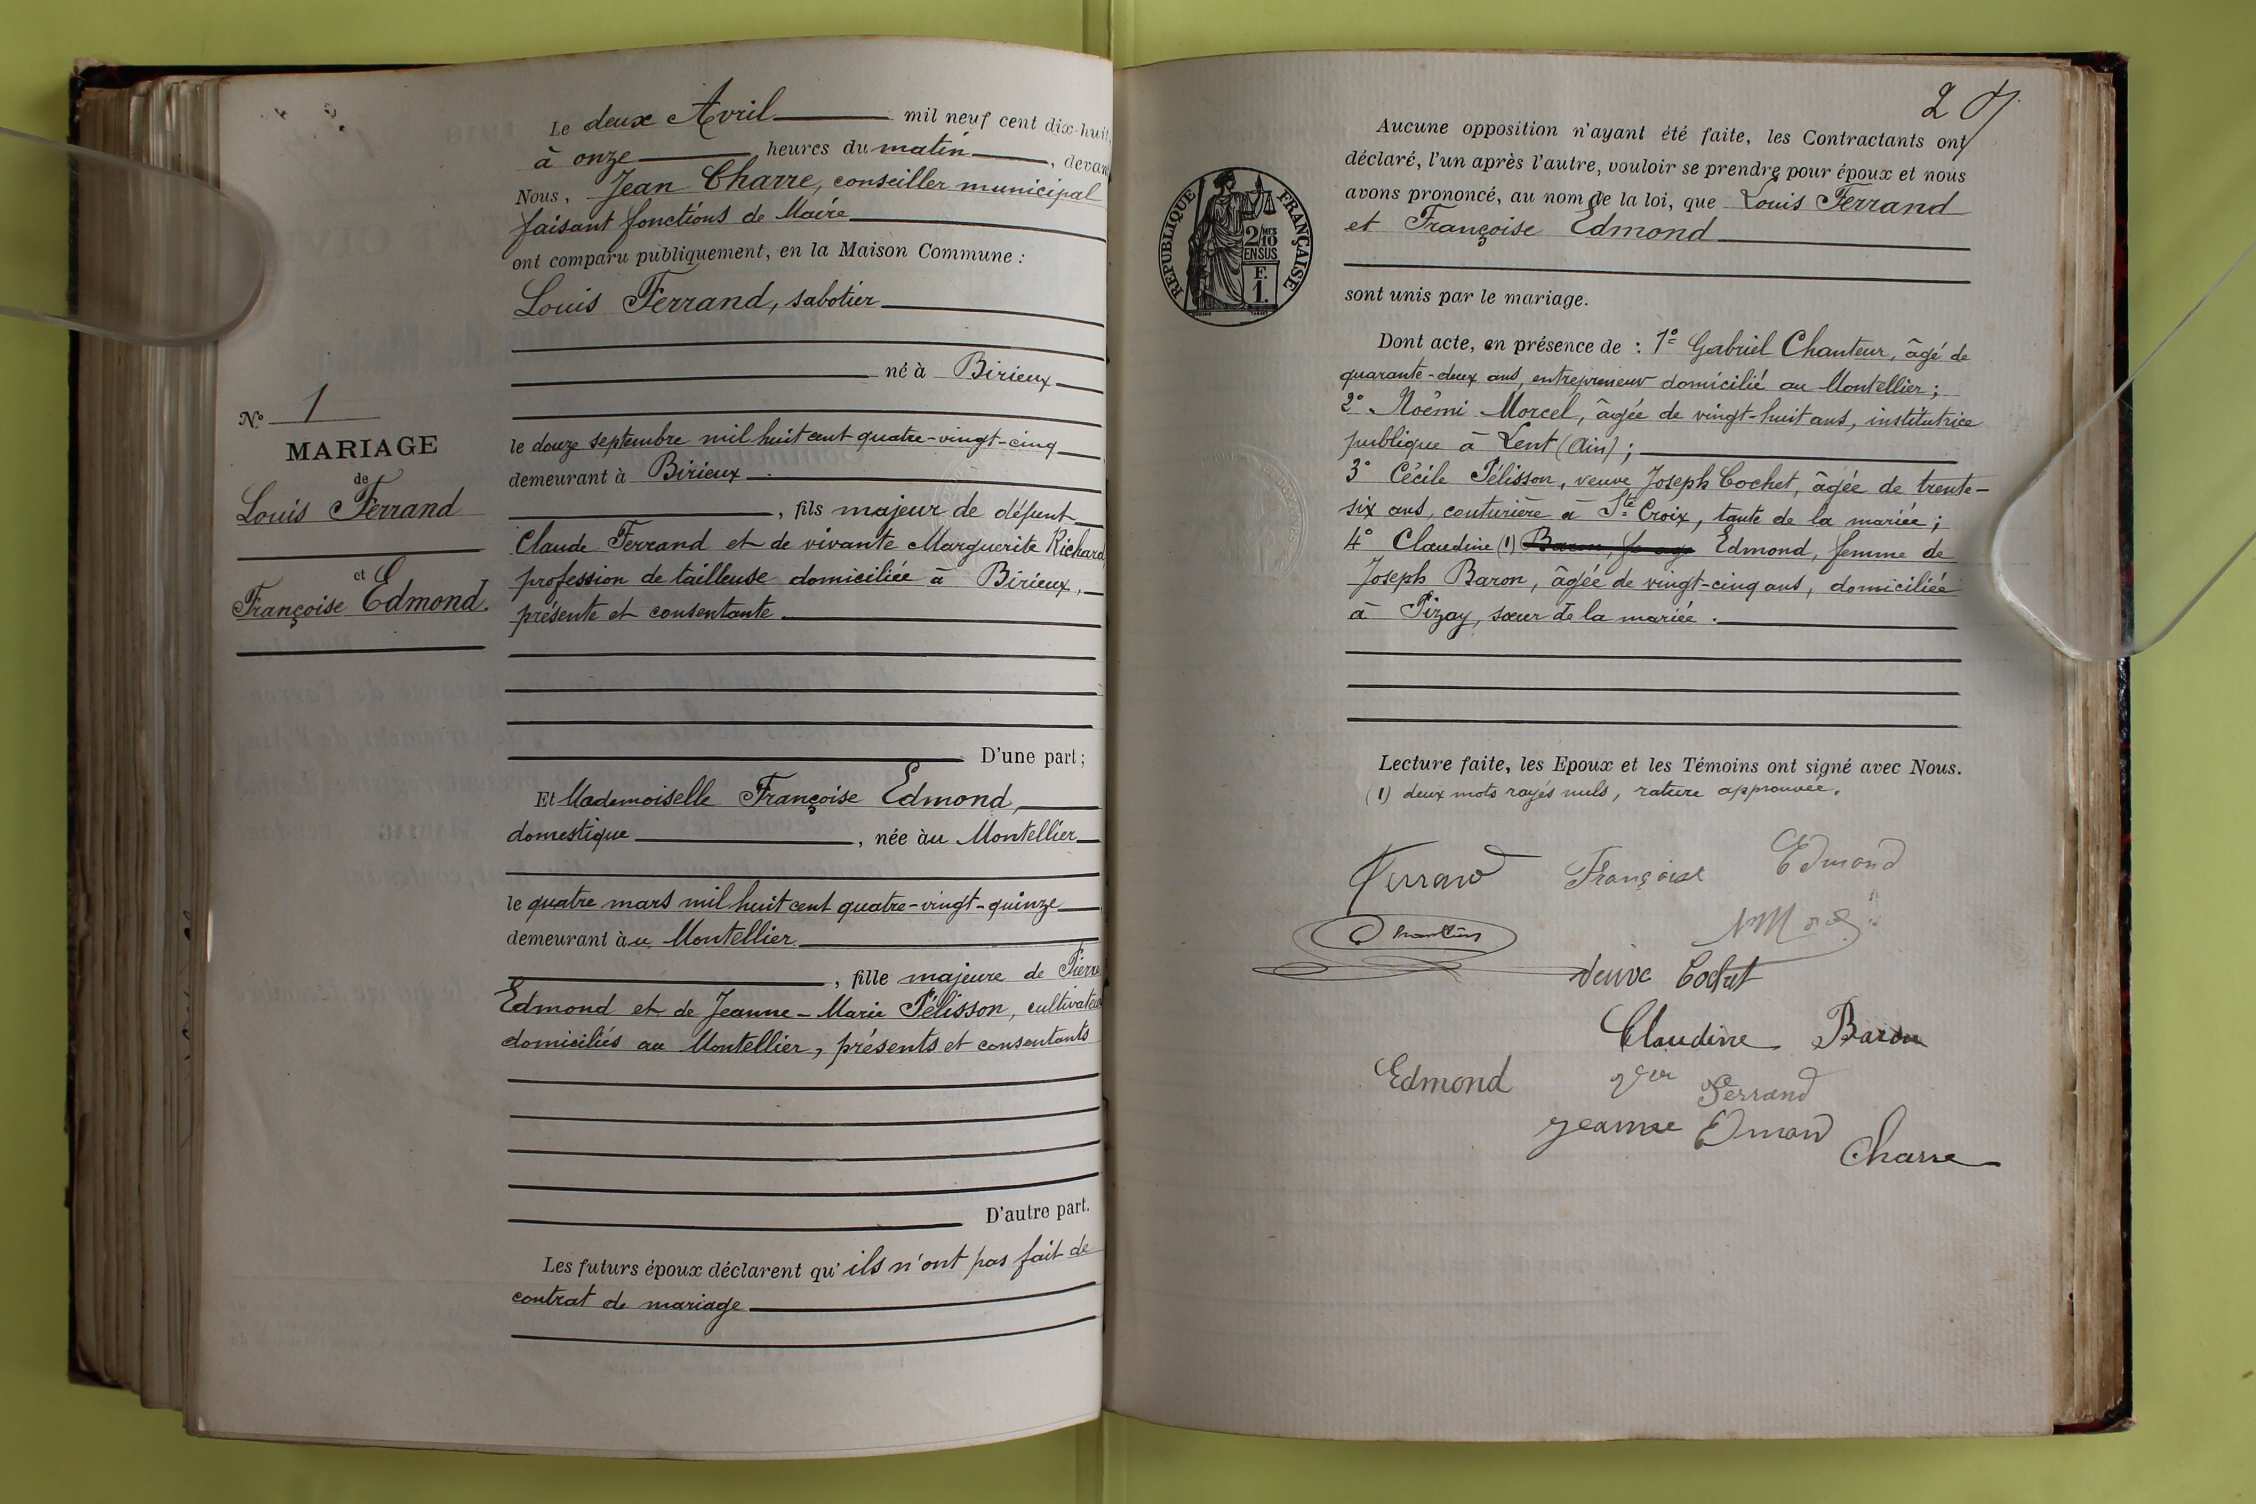 Le deux Avril mil neuf cent dix-huit,
à onze heures du matin, devant
Nous, Jean Charre, conseiller municipal
faisant fonctions de Maire
ont comparu publiquement, en la Maison Commune :
Louis Ferrand, sabotier
né à Birieux
le douze septembre mil huit cent quatre-vingt-cinq
demeurant à Birieux
, fils majeur de défunt
Claude Ferrand et de vivante Marguerite Richard
profession de tailleuse domiciliée à Birieux,
présente et consentante
D'une part ;
Et Mademoiselle Françoise Edmond,
domestique, née àu Montellier
le quatre mars mil huit cent quatre-vingt-quinze
demeurant àu Montellier
, fille majeure de Pierre
Edmond et de Jeanne-Marie Pélisson, cultivateurs
domiciliés au Montellier, présents et consentants
D'autre part.
Les futurs époux déclarent qu'ils n'ont pas fait de
contrat de mariage
N° 1
MARIAGE
de
Louis Ferrand
et
Françoise Edmond.
2
RÉPUBLIQUE FRANÇAISE
2/10 MES
EN SUS
F.
1.
Aucune opposition n'ayant été faite, les Contractants ont
déclaré, l'un après l'autre, vouloir se prendre pour époux et nous
avons prononcé, au nom de la loi, que Louis Ferrand
et Françoise Edmond
sont unis par le mariage.
Dont acte, en présence de : 1° Gabriel Chanteur, âgé de
quarante-deux ans, entrepreneur domicilié au Montellier ;
2° Noémi Morcel, âgée de vingt-huit ans, institutrice
publique à Lent (Ain) ;
3° Cécile Pélisson, veuve Joseph Cochet, âgée de trente-
six ans, couturière à Ste Croix, tante de la mariée ;
4° Claudine (1) Baron, Edmond, femme de
Joseph Baron, âgée de vingt-cinq ans, domiciliée
à Pizay, sœur de la mariée.
Lecture faite, les Epoux et les Témoins ont signé avec Nous.
(1) deux mots rayés nuls, rature approuvée.
Ferrand Françoise Edmond
Chanteur
veuve Cochet
Claudine Baron
Edmond Ferrand
Jeanne Emond
Charre